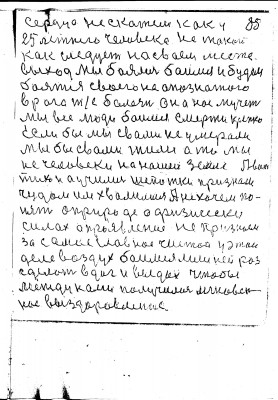 сердца не скажем как у 85
25 летнего человека не такой
как следует на своем месте.
выход мы боялись боимся и будем
боятся своего не опознанного
врага т/е болезн она нас мучает
мы все люди боимся смерти крепко
если бы мы с вами не умерали
мы бы с вами жили а то мы
не человеки на нашей земле
их научили признали
чудом им хвалимся а не хочем по-
нять о природе о физически
силах а проявление не признали
за самое главное чистой у этом
деле воздух боимся лишней раз
сделать вдох и выдох чтобы
между нами получилася мгновен-
ное выздоравление.